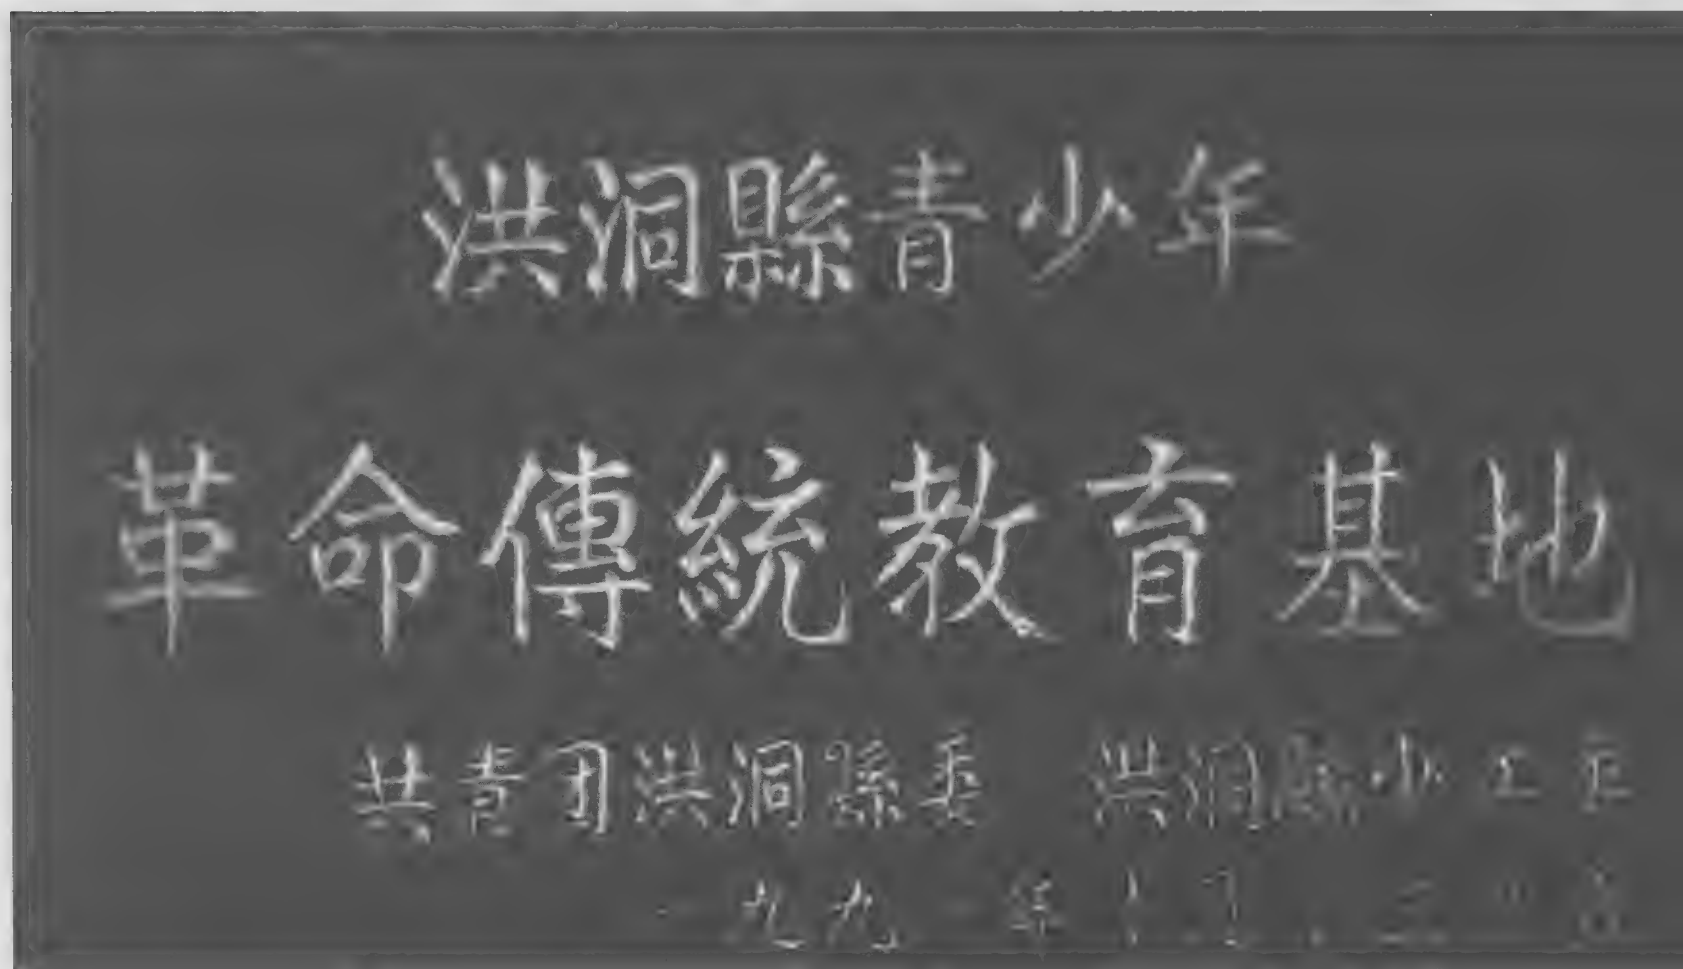 洪洞縣青少年
革命傳統教育基地
共青团洪洞縣委 洪洞縣少工委
一九九一年十